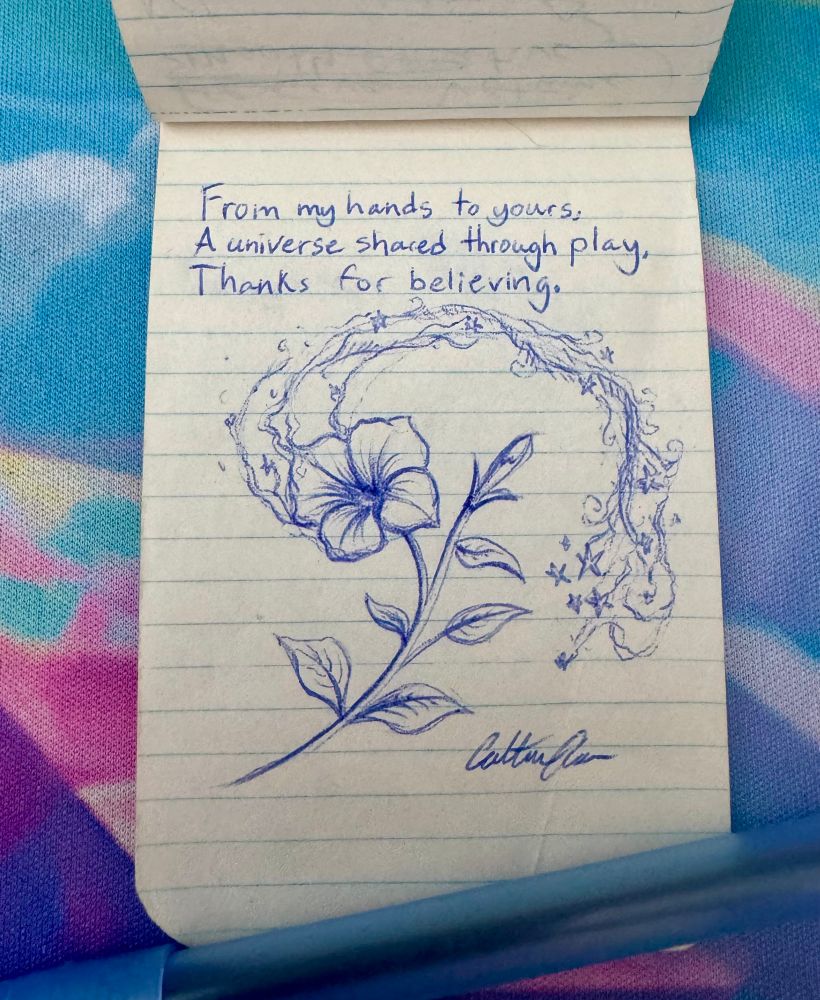 From my hands to yours.
A universe shared through play.
Thanks for believing.